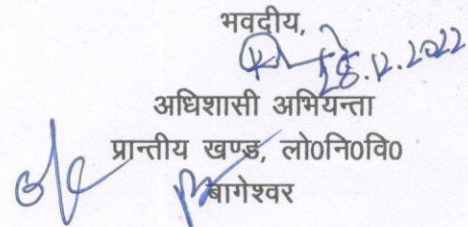 भवदीय,
28.12.2022
अधिशासी अभियन्ता
प्रान्तीय खण्ड, लो0नि0वि0
बागेश्वर